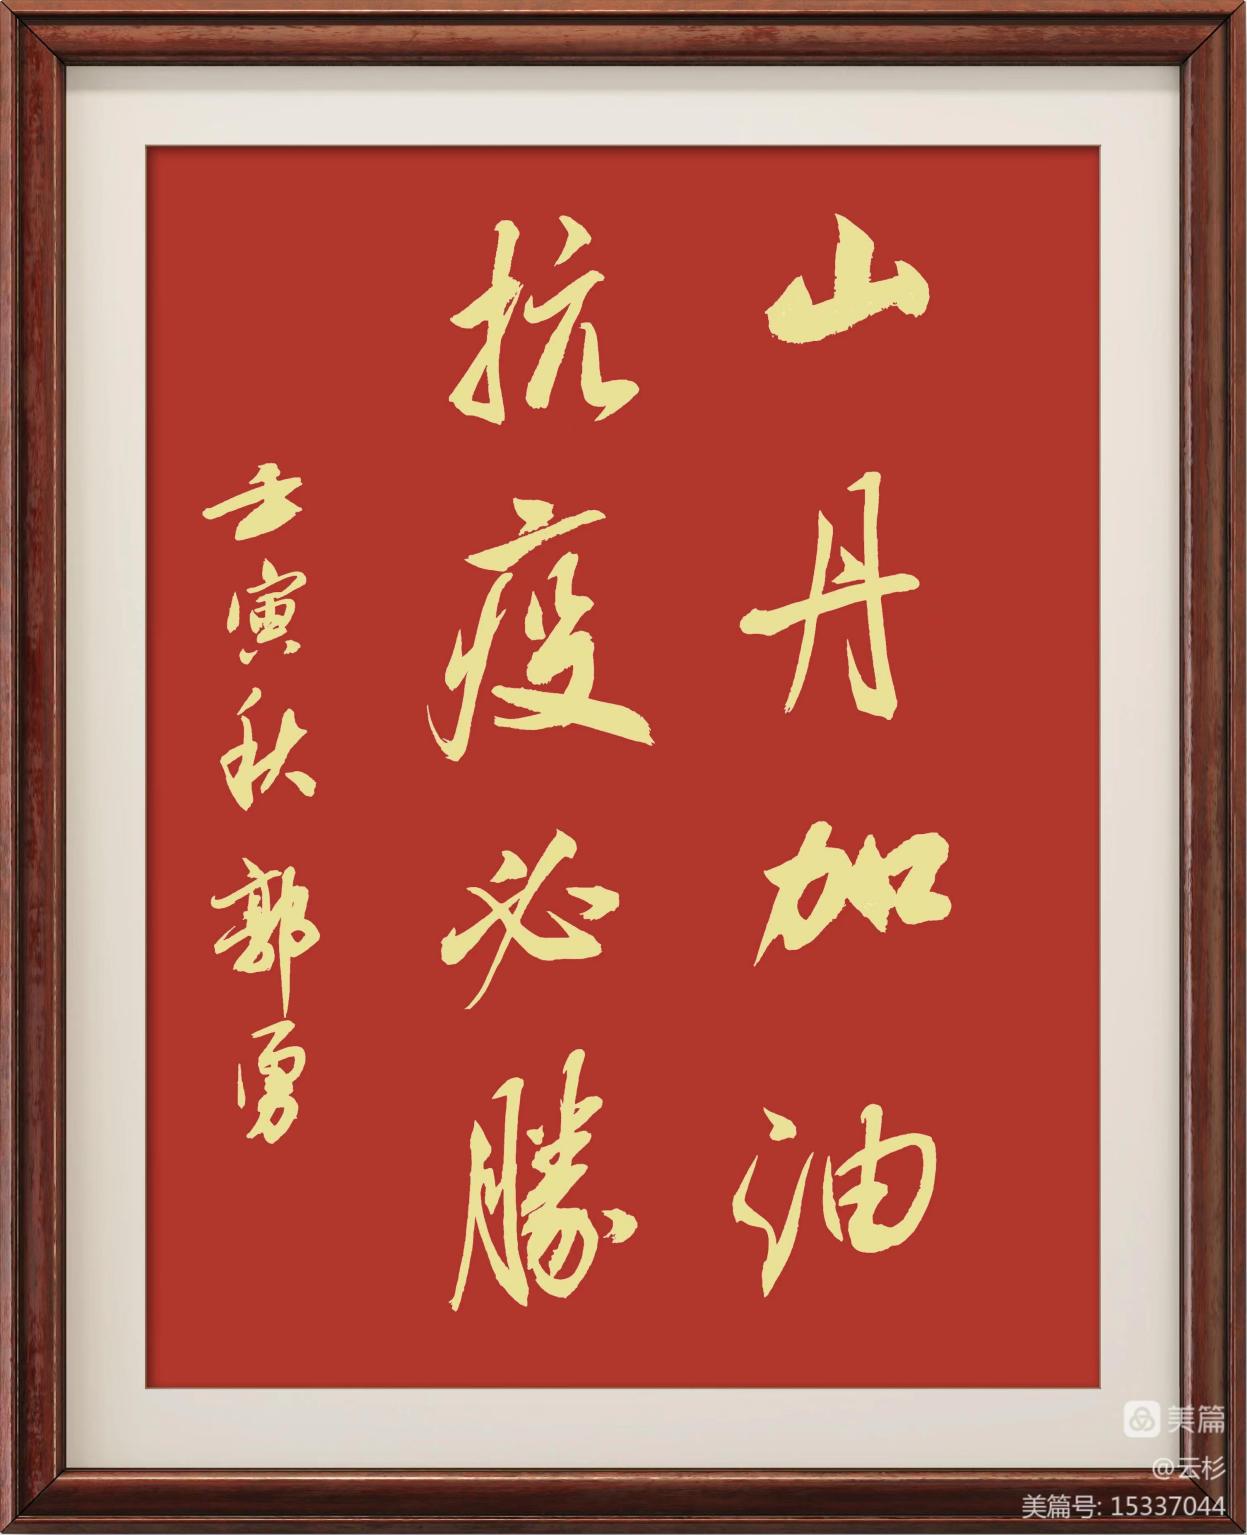 山丹加油
抗疫必勝
壬寅秋 郭勇
美篇
@云杉
美篇号: 15337044